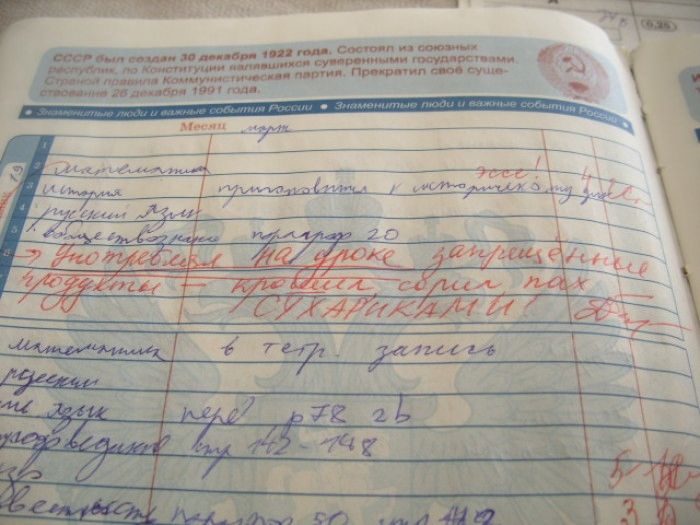 СССР был создан 30 декабря 1922 года. Состоял из союзных
республик, по Конституции являвшихся суверенными государствами.
Страной правила Коммунистическая партия. Прекратил своё суще-
ствование 26 декабря 1991 года.
• Знаменитые люди и важные события России • Знаменитые люди и важные события России •
Месяц март
1
2 математика эссе!
3 история приготовится к историческому
4 русский язык
5 обществознание параграф 20
6 → употреблял на уроке запрещённые
продукты — крошил сорил пах
СУХАРИКАМИ!
19
математика в тетр. запись
язык перев р78 2b
стр 142-148
5
параграф 50 стр
3
0,25